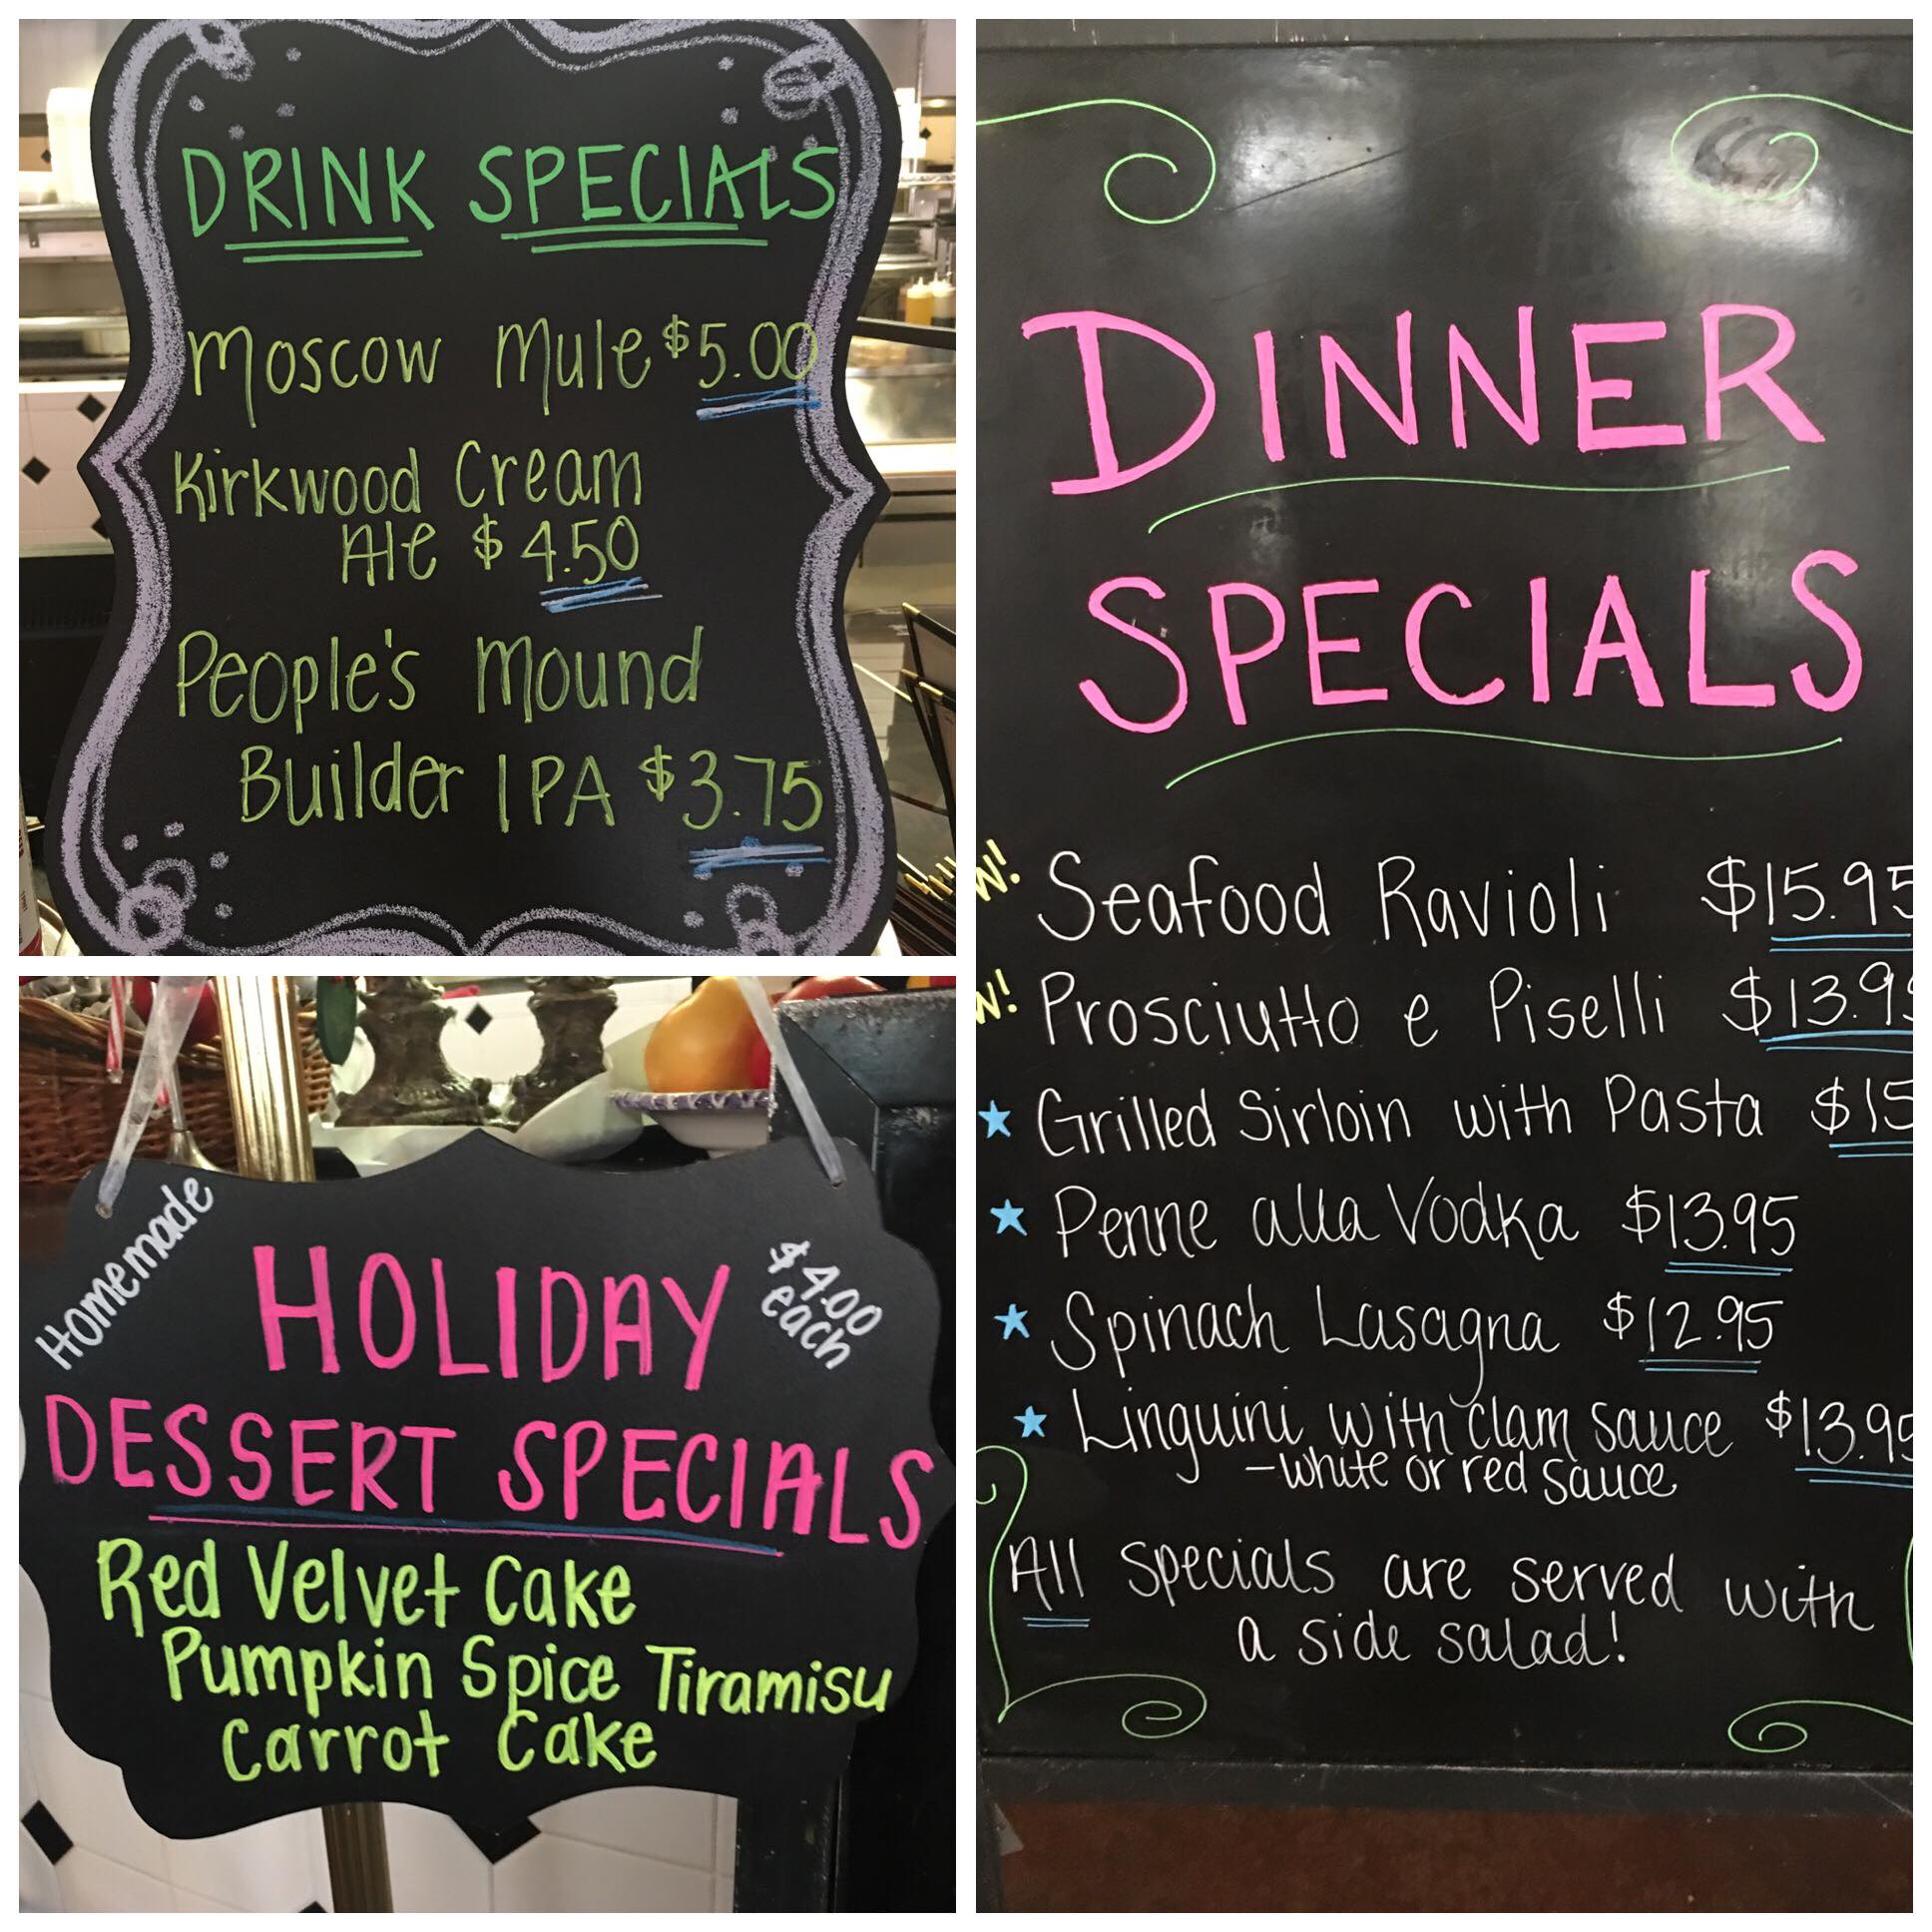 DRINK SPECIALS
Moscow Mule $5.00
Kirkwood Cream
Ale $4.50
People's Mound
Builder IPA $3.75
Homemade
$4.00
each
HOLIDAY
DESSERT SPECIALS
Red Velvet Cake
Pumpkin Spice Tiramisu
Carrot Cake
DINNER
SPECIALS
W! Seafood Ravioli $15.95
W! Prosciutto e Piselli $13.95
Grilled Sirloin with Pasta $15
Penne alla Vodka $13.95
Spinach Lasagna $12.95
Linguini with clam sauce $13.95
-white or red sauce
All specials are served with
a side salad!